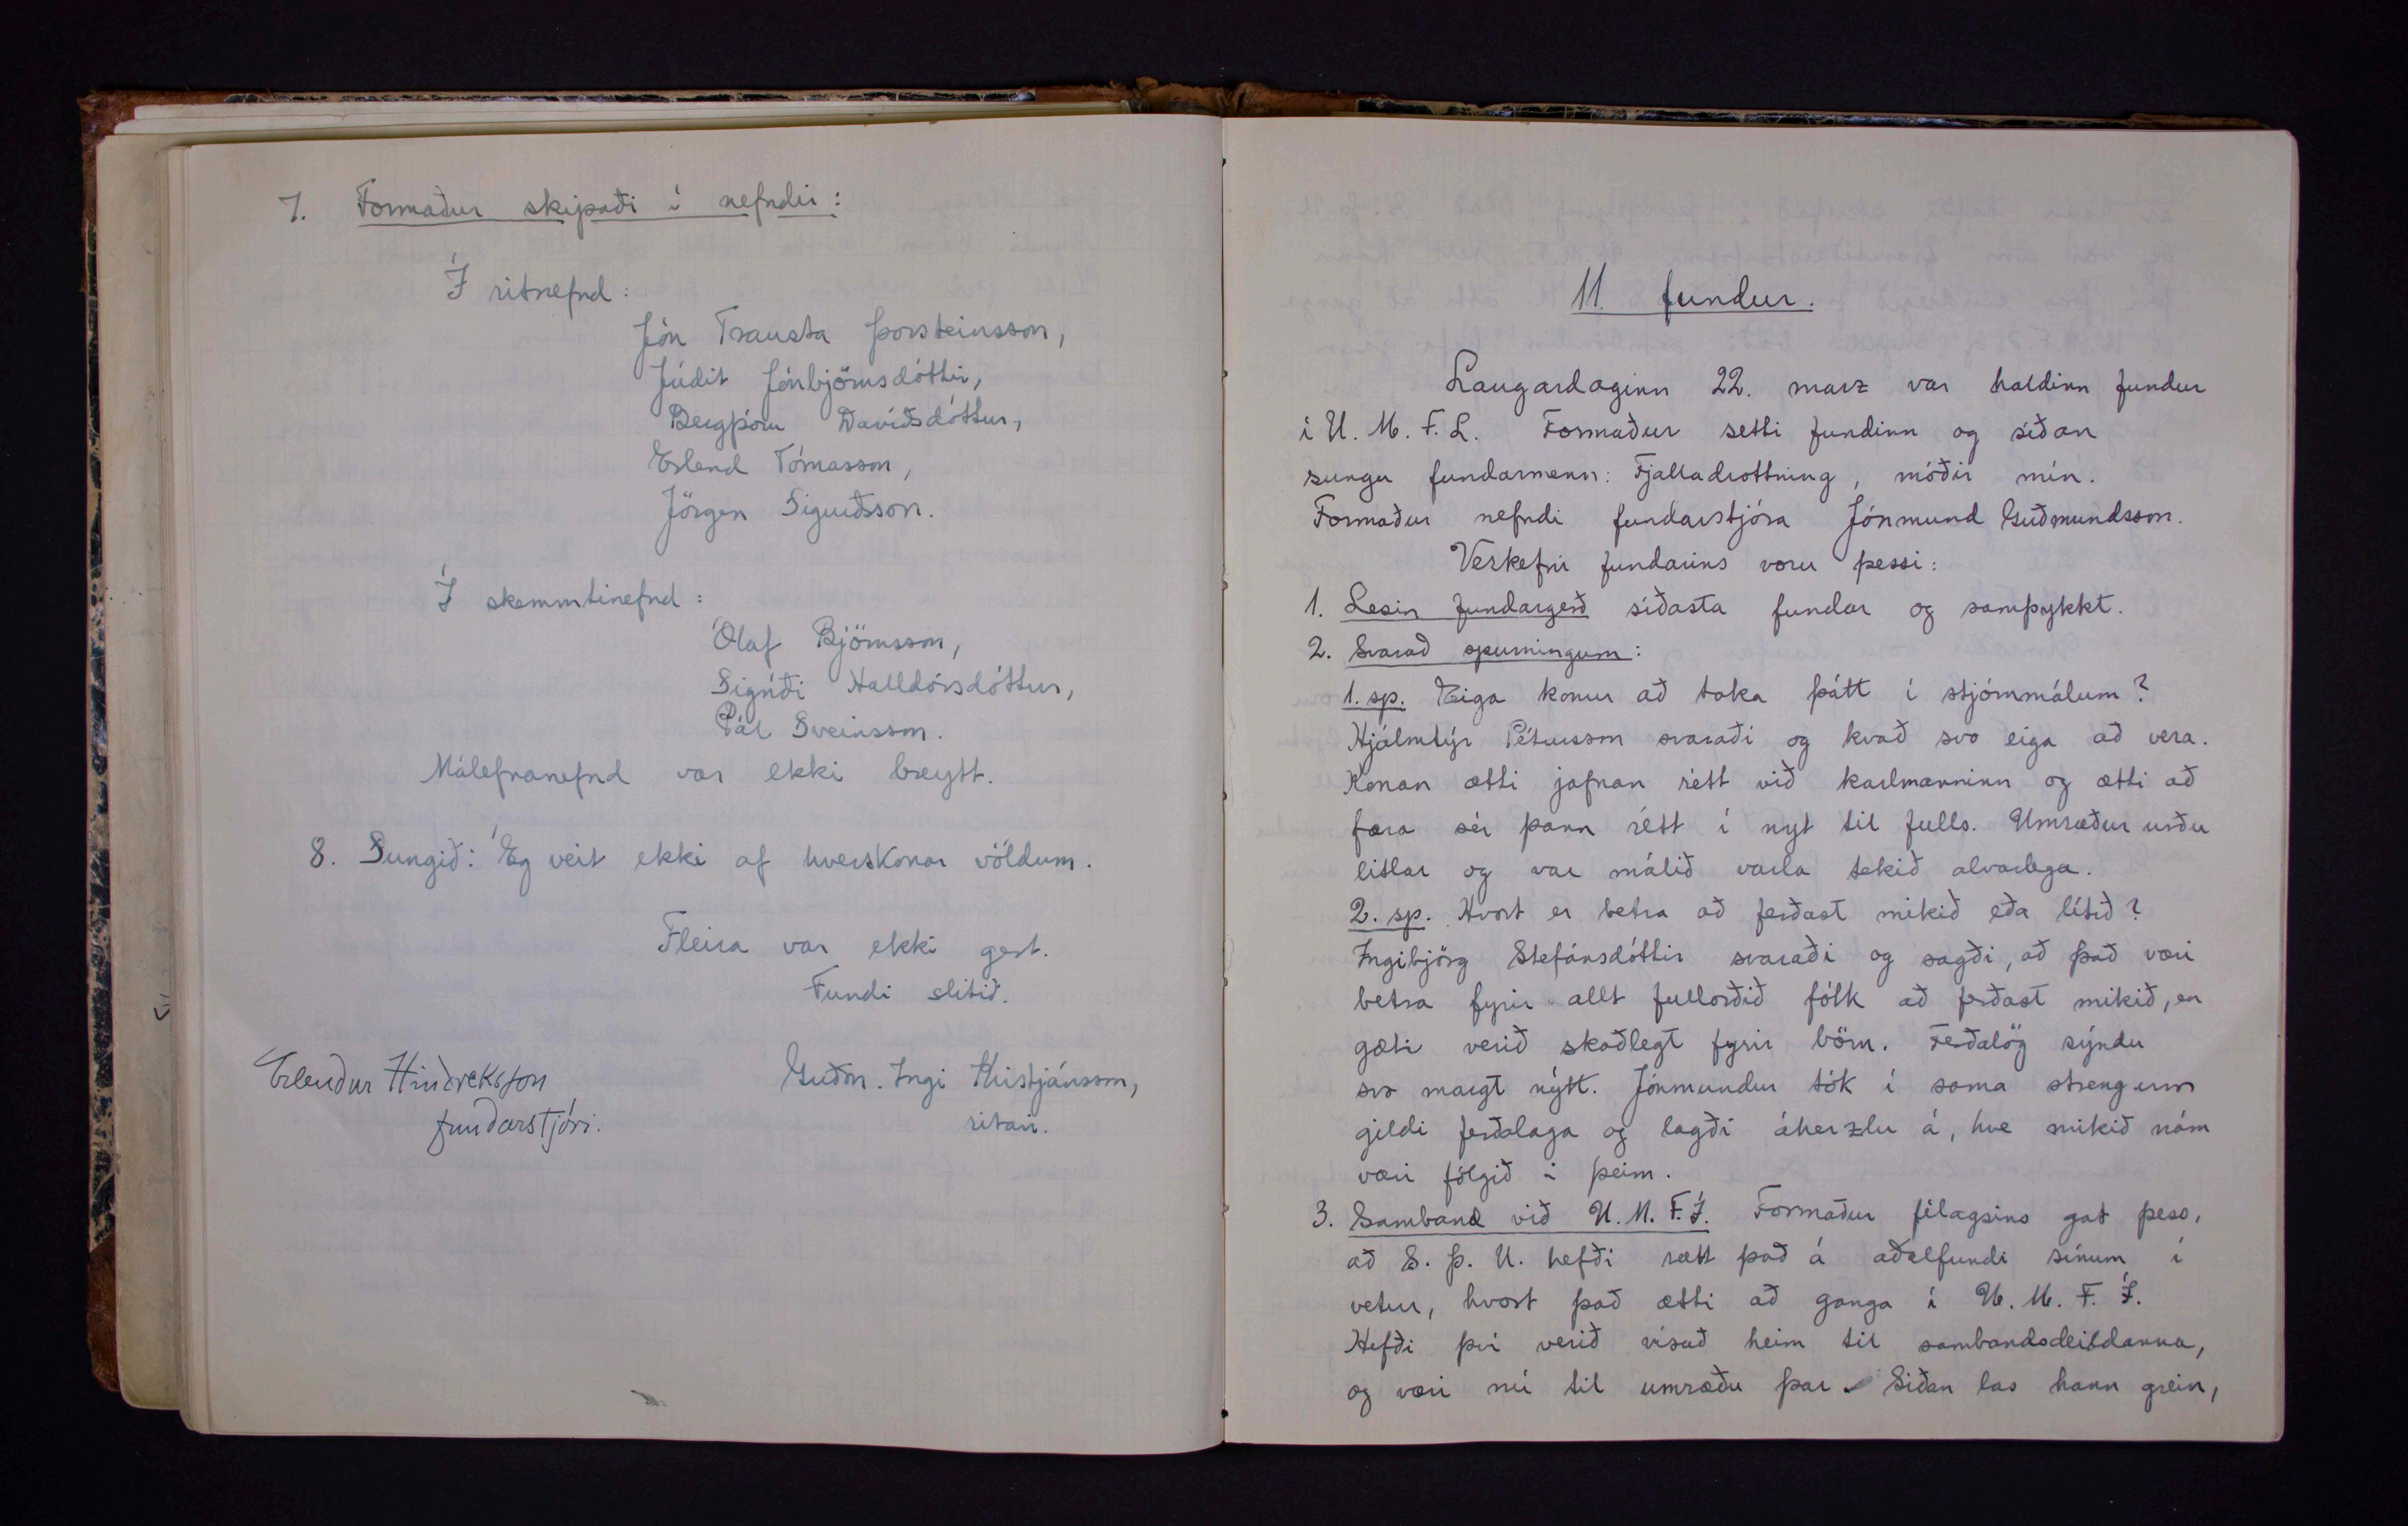 7. Formaður skipaði í nefndir:
Í ritnefnd:
Jón Trausta Þorsteinsson,
Júdit Jónbjörnsdóttir,
Bergþóru Davíðsdóttur,
Erlend Tómasson,
Jörgen Sigurðsson.
Í skemmtinefnd:
Ólaf Björnsson,
Sigríði Halldórsdóttur,
Pál Sveinsson.
Málefnanefnd var ekki breytt.
8. Sungið: Ég veit ekki af hverskonar völdum.
Fleira var ekki gert.
Fundi slitið.
Erlendur Hindreksson
fundarstjóri.
Guðm. Ingi Kristjánsson,
ritari.
11. fundur.
Laugardaginn 22. marz var haldinn fundur
í U. M. F. L. Formaður setti fundinn og síðan
sungu fundarmenn: Fjalladrottning, móðir mín.
Formaður nefndi fundarstjóra Jónmund Guðmundsson.
Verkefni fundarins voru þessi:
1. Lesin fundargerð síðasta fundar og samþykkt.
2. Svarað spurningum:
1. sp. Eiga konur að taka þátt í stjórnmálum?
Hjálmtýr Pétursson svaraði og kvað svo eiga að vera.
Konan ætti jafnan rétt við karlmanninn og ætti að
færa sér þann rétt í nyt til fulls. Umræður urðu
litlar og var málið varla tekið alvarlega.
2. sp. Hvort er betra að ferðast mikið eða lítið?
Ingibjörg Stefánsdóttir svaraði og sagði, að það væri
betra fyrir allt fullorðið fólk að ferðast mikið, en
gæti verið skaðlegt fyrir börn. Ferðalög sýndu
svo margt nýtt. Jónmundur tók í sama streng um
gildi ferðalaga og lagði áherzlu á, hve mikið nám
væri fólgið í þeim.
3. Samband við U. M. F. Í. Formaður félagsins gat þess,
að S. Þ. U. hefði rætt það á aðalfundi sínum í
vetur, hvort það ætti að ganga í U. M. F. Í.
Hefði því verið vísað heim til sambandsdeildanna,
og væri nú til umræðu þar. Síðan las hann grein,